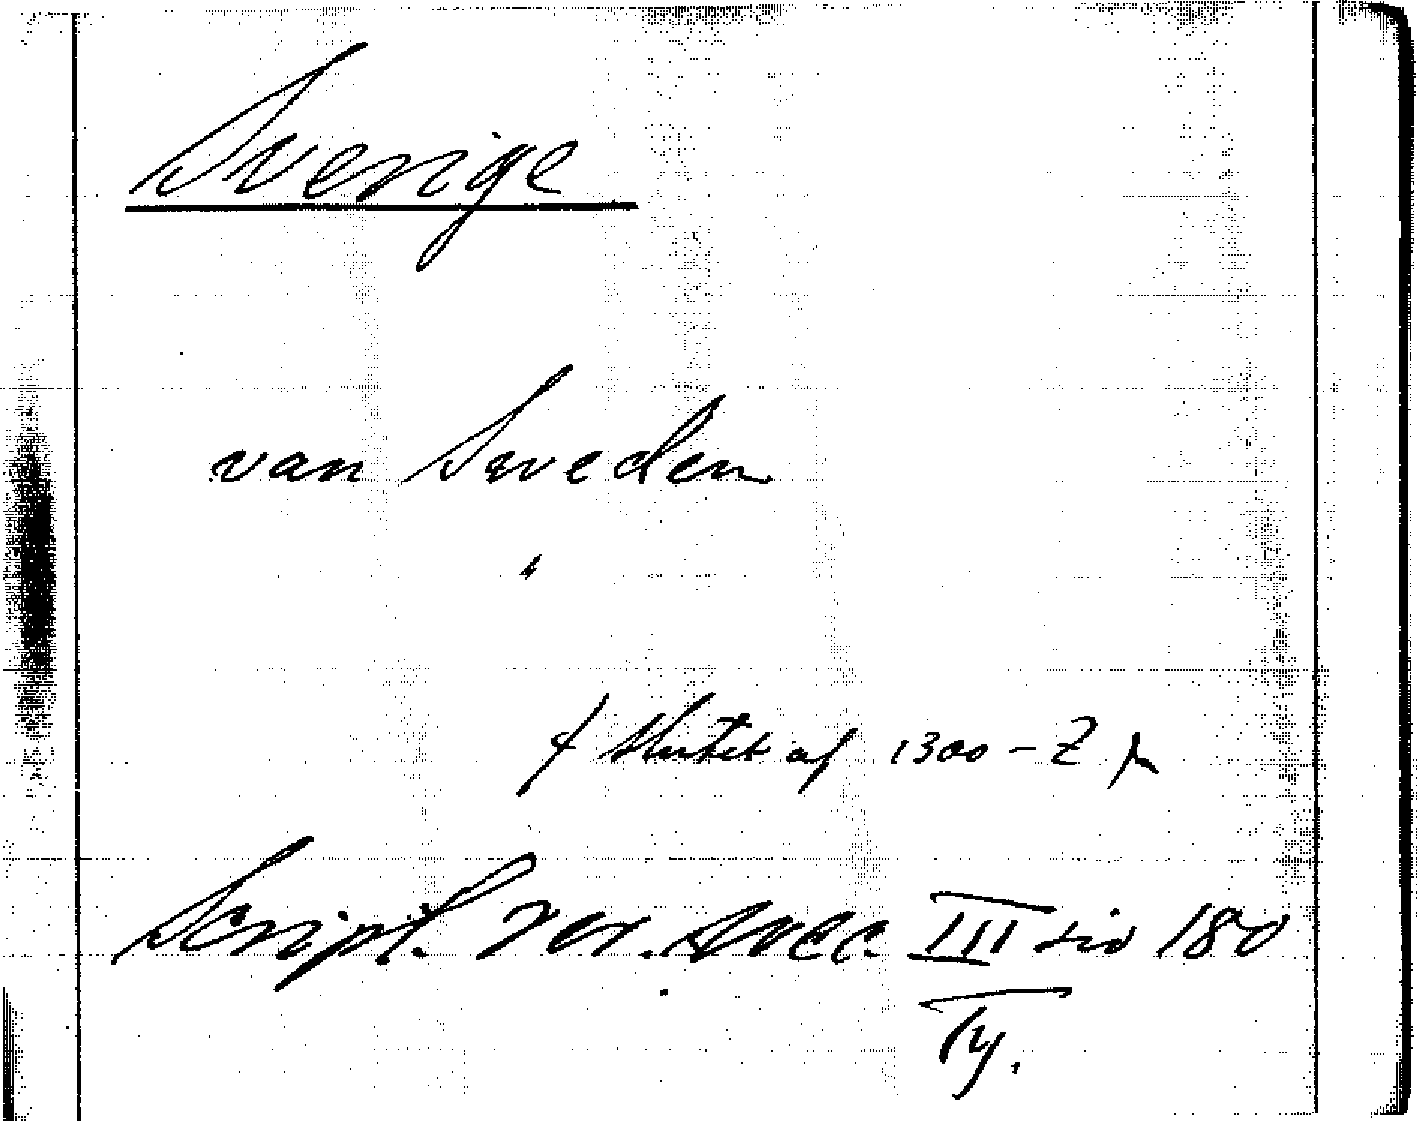 Sverige
van Sweden
f slutet af 1300-t
Script. rer. svec. III sid 180
Ty.